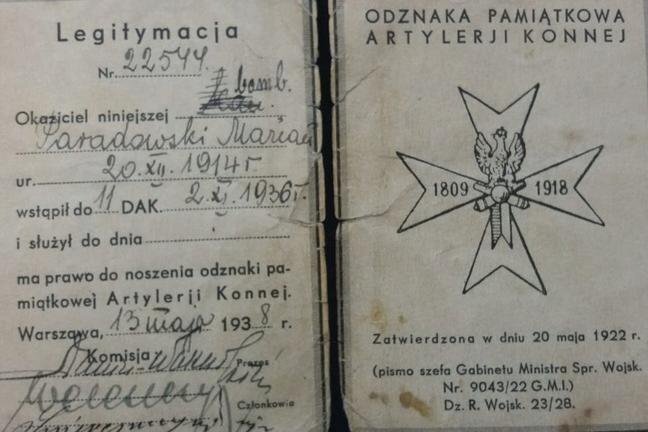 Legitymacja
Nr. 22544.
bomb.
Okaziciel niniejszej
Paradowski Marian
ur. 20.XII.1914r
wstąpił do 11 DAK. 2.XI.1936r.
i służył do dnia
ma prawo do noszenia odznaki pa-
miątkowej Artylerji Konnej.
Warszawa, 13 maja 1938 r.
Komisja
Prezes
Członkowie
ODZNAKA PAMIĄTKOWA
ARTYLERJI KONNEJ
1809 1918
Zatwierdzona w dniu 20 maja 1922 r.
(pismo szefa Gabinetu Ministra Spr. Wojsk.
Nr. 9043/22 G.M.I.)
Dz. R. Wojsk. 23/28.